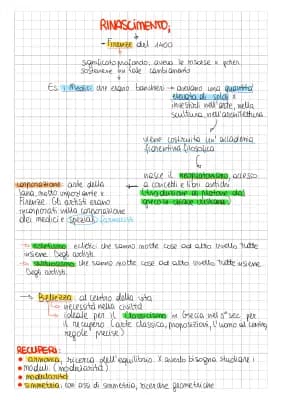 RINASCIMENTO;
- Firenze del 1400
significato profondo, aveva le risorse x poter
sostenere un tale cambiamento
Es. i Medici che erano banchieri → avevano una quantità
elevata di soldi x
investirli nell'arte, nella
scultura, nell'architettura
viene costruita un'accademia
fiorentina filosofica
nasce il neoplatonismo, accesso
a concetti e libri antichi
di Platone dal
greco in chiave cristiana
corporazione arte della
lana, molto importante x
Firenze. Gli artisti erano
incorporati nella corporazione
dei medici e speziali → farmacisti
→ eclettismo eclettici che sanno molte cose ad alto livello tutte
insieme. Degli artisti.
→ che sanno molte cose ad alto livello tutte insieme
Degli artisti.
→ Bellezza: al centro della vita
→ necessità nella civiltà
→ ideale per il classicismo in Grecia nel 5° sec. per
il recupero (arte classica, proposizioni, l'uomo al centro,
regole precise)
RECUPERI:
• armonia, ricerca dell'equilibrio. X averlo bisogna studiare i
• moduli (modularità)
• modularità
• simmetria, con assi di simmetria, ricerche geometriche